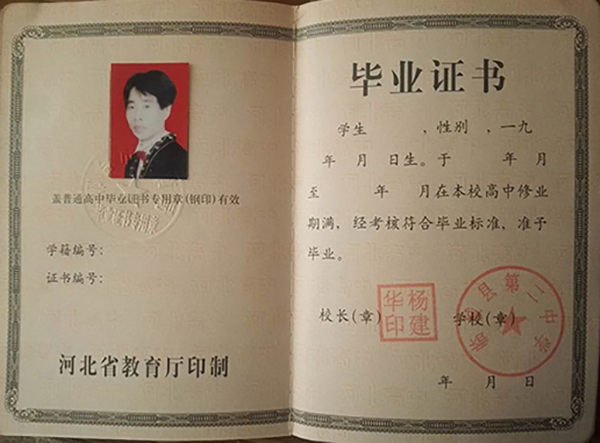 盖普通高中毕业证书专用章(钢印)有效
学籍编号：
证书编号：
河北省教育厅印制
毕业证书
学生　　，性别　，一九
年　月　日生。于　　年　月
至　　年　月在本校高中修业
期满，经考核符合毕业标准，准予
毕业。
校长(章)
杨建华印
学校(章)
县第二中学
年　月　日